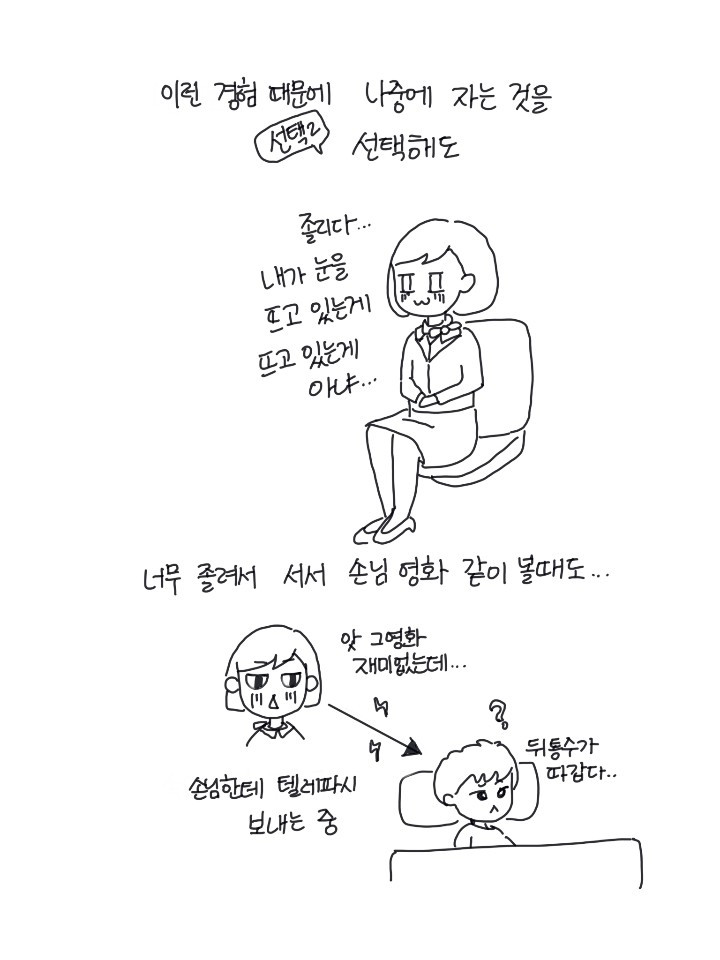 이런 경험 때문에 나중에 자는 것을
선택2 선택해도
졸리다...
내가 눈을
뜨고 있는게
뜨고 있는게
아냐...
너무 졸려서 서서 손님 영화 같이 볼때도...
앗 그영화
재미없는데...
?
뒤통수가
따갑다..
손님한테 텔레파시
보내는 중